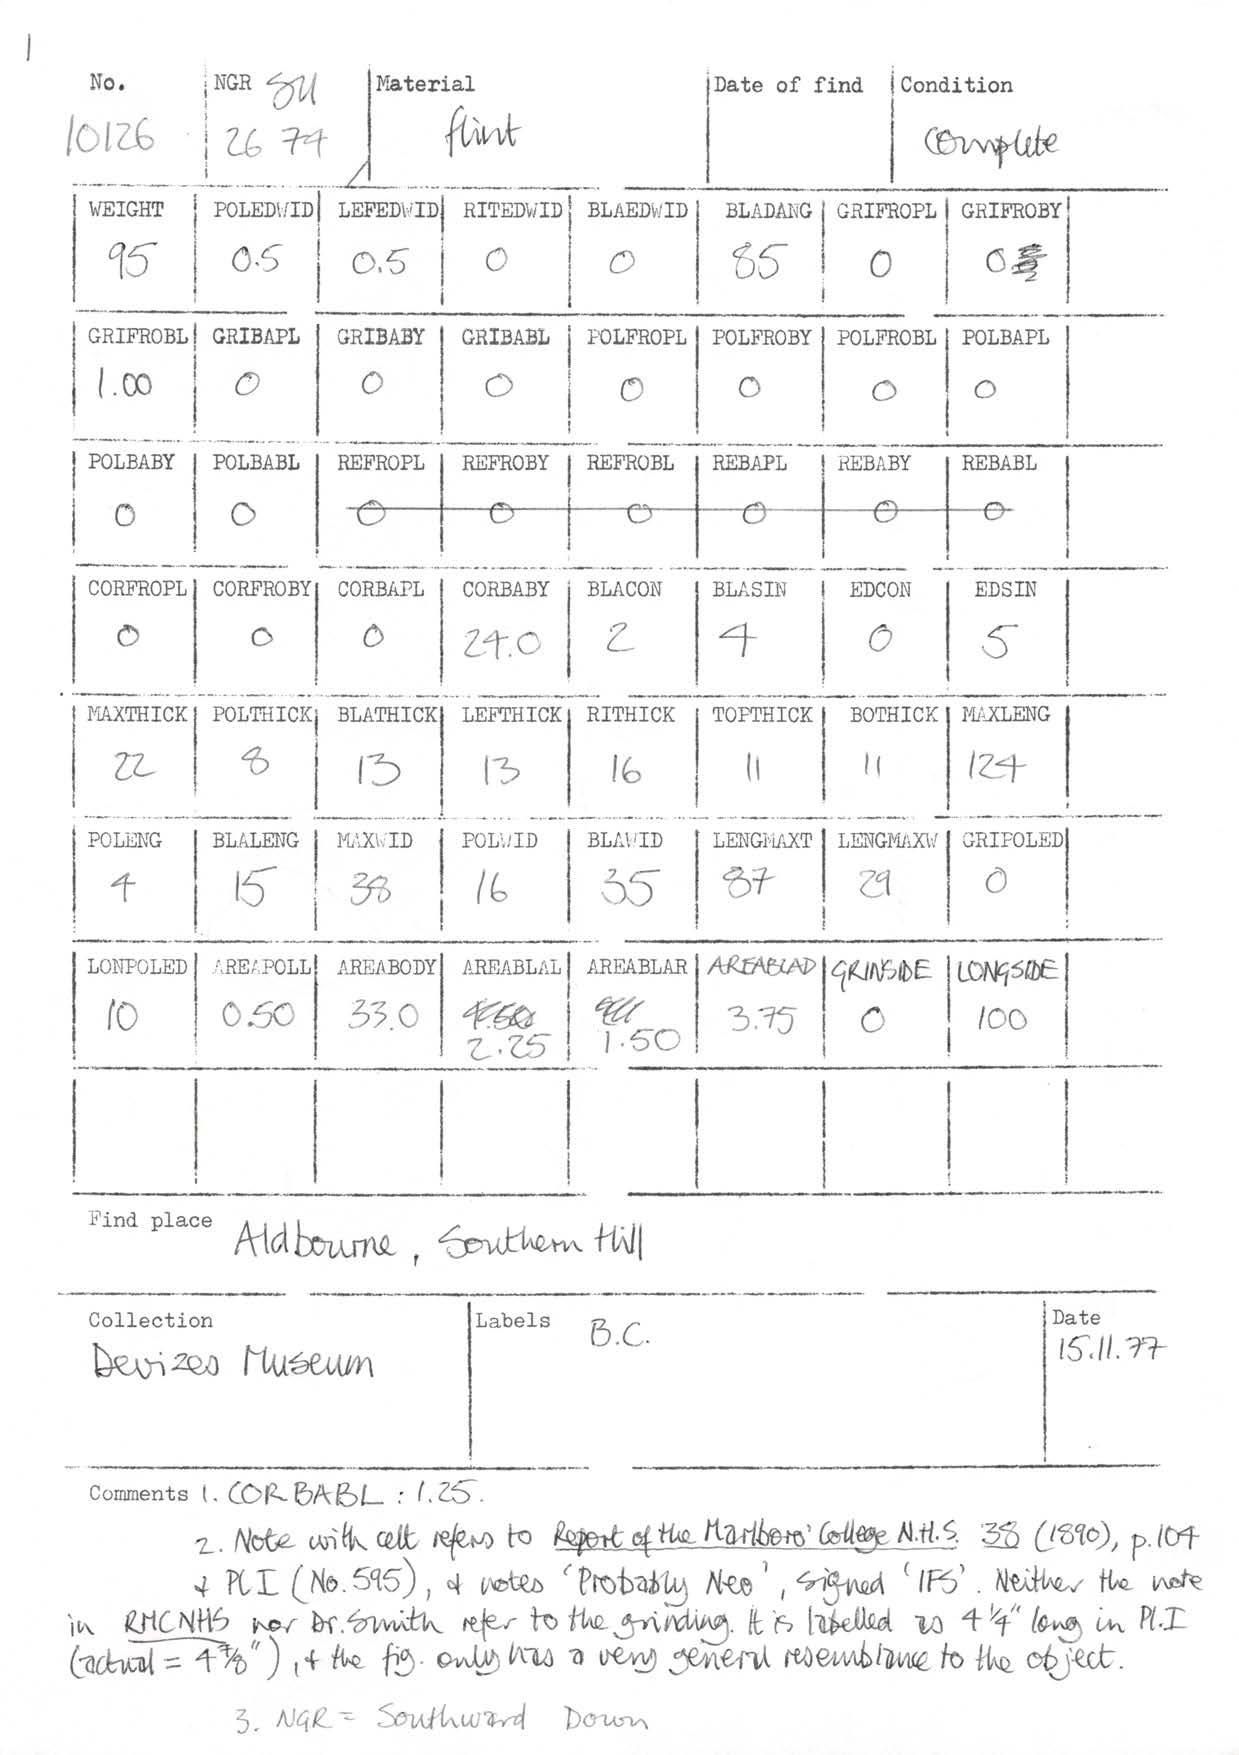 1
No. NGR SU Material Date of find Condition
10126 26 74 flint complete
WEIGHT POLEDWID LEFEDWID RITEDWID BLAEDWID BLADANG GRIFROPL GRIFROBY
95 0.5 0.5 0 0 85 0 0
GRIFROBL GRIBAPL GRIBABY GRIBABL POLFROPL POLFROBY POLFROBL POLBAPL
1.00 0 0 0 0 0 0 0
POLBABY POLBABL REFROPL REFROBY REFROBL REBAPL REBABY REBABL
0 0 0 0 0 0 0 0
CORFROPL CORFROBY CORBAPL CORBABY BLACON BLASIN EDCON EDSIN
0 0 0 24.0 2 4 0 5
MAXTHICK POLTHICK BLATHICK LEFTHICK RITHICK TOPTHICK BOTHICK MAXLENG
22 8 13 13 16 11 11 124
POLENG BLALENG MAXWID POLWID BLAWID LENGMAXT LENGMAXW GRIPOLED
4 15 38 16 35 87 29 0
LONPOLED AREAPOLL AREABODY AREABLAL AREABLAR AREABLAD GRINSIDE LONGSIDE
10 0.50 33.0 3.75 0 100
2.25 1.50
Find place Aldbourne, Southern Hill
Collection Labels B.C. Date
Devizes Museum 15.11.77
Comments 1. CORBABL : 1.25.
2. Note with celt refers to Report of the Marlboro' College N.H.S. 38 (1890), p.104
& Pl I (No. 595), & notes 'Probably Neo', signed 'IFS'. Neither the note
in RMCNHS nor Dr. Smith refer to the grinding. It is labelled as 4 1/4" long in Pl. I
(actual = 4 7/8"), & the fig. only has a very general resemblance to the object.
3. NGR = Southward Down